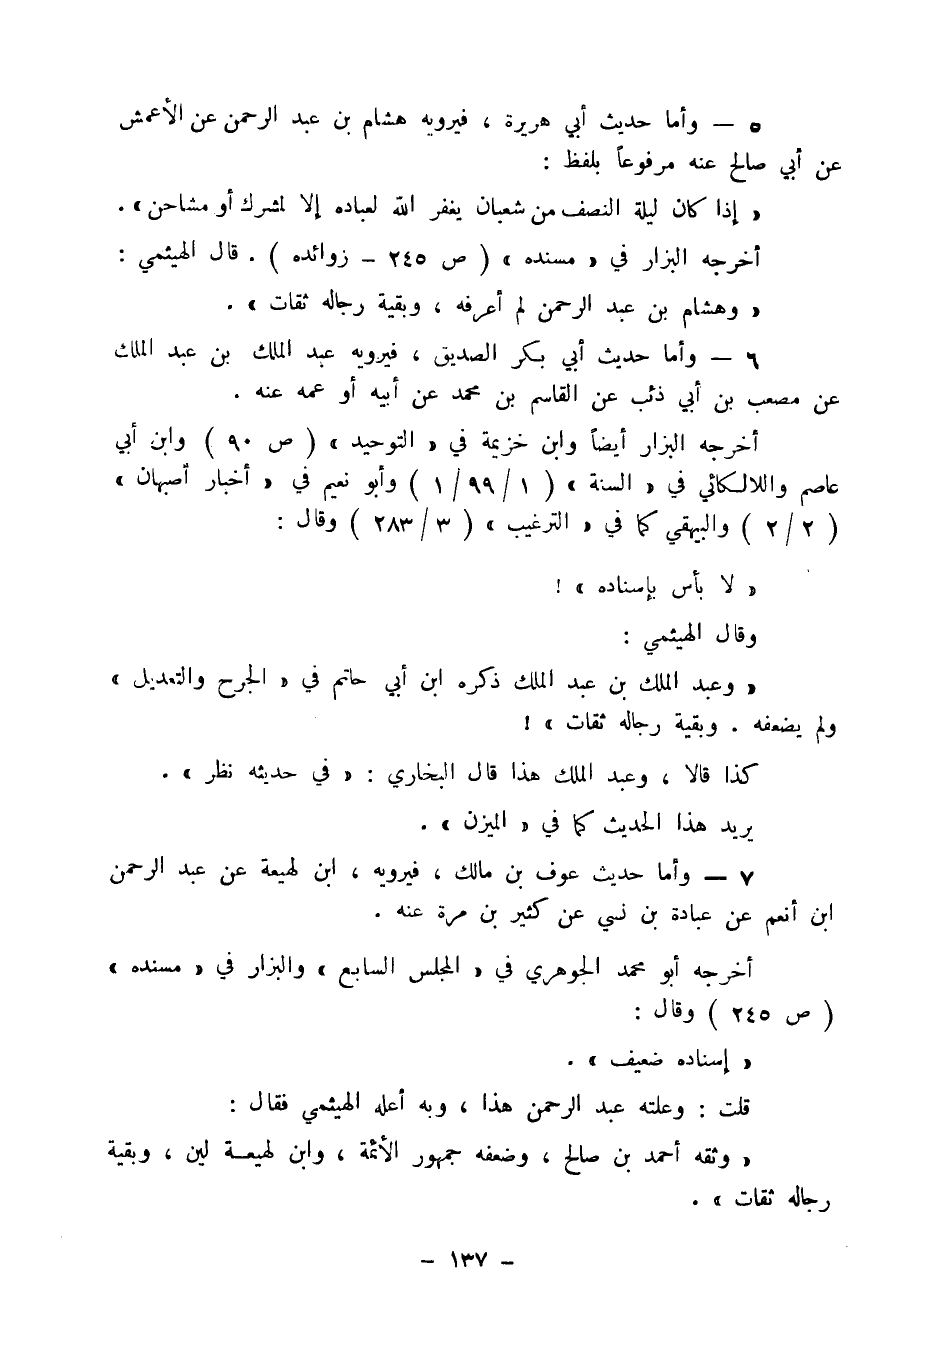 ٥ — وأما حديث أبي هريرة ، فيرويه هشام بن عبد الرحمن عن الأعمش
عن أبي صالح عنه مرفوعاً بلفظ :
« إذا كان ليلة النصف من شعبان يغفر الله لعباده إلا لمشرك أو مشاحن » .
أخرجه البزار في « مسنده » ( ص ٢٤٥ – زوائده ) . قال الهيثمي :
« وهشام بن عبد الرحمن لم أعرفه ، وبقية رجاله ثقات » .
٦ — وأما حديث أبي بكر الصديق ، فيرويه عبد الملك بن عبد الملك
عن مصعب بن أبي ذئب عن القاسم بن محمد عن أبيه أو عمه عنه .
أخرجه البزار أيضاً وابن خزيمة في « التوحيد » ( ص ٩٠ ) وابن أبي
عاصم واللالكائي في « السنة » ( ١ / ٩٩ / ١ ) وأبو نعيم في « أخبار أصبهان »
( ٢ / ٢ ) والبيهقي كما في « الترغيب » ( ٣ / ٢٨٣ ) وقال :
« لا بأس بإسناده » !
وقال الهيثمي :
« وعبد الملك بن عبد الملك ذكره ابن أبي حاتم في « الجرح والتعديل »
ولم يضعفه . وبقية رجاله ثقات » !
كذا قالا ، وعبد الملك هذا قال البخاري : « في حديثه نظر » .
يريد هذا الحديث كما في « الميزن » .
٧ — وأما حديث عوف بن مالك ، فيرويه ، ابن لهيعة عن عبد الرحمن
ابن أنعم عن عبادة بن نسي عن كثير بن مرة عنه .
أخرجه أبو محمد الجوهري في « المجلس السابع » والبزار في « مسنده »
( ص ٢٤٥ ) وقال :
« إسناده ضعيف » .
قلت : وعلته عبد الرحمن هذا ، وبه أعله الهيثمي فقال :
« وثقه أحمد بن صالح ، وضعفه جمهور الأئمة ، وابن لهيعة لين ، وبقية
رجاله ثقات » .
– ١٣٧ –